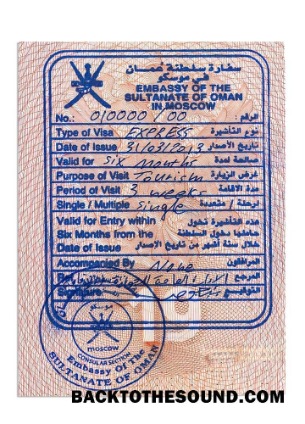 سفارة سلطنة عمان
في موسكو
EMBASSY OF THE
SULTANATE OF OMAN
IN MOSCOW
No.: 010000/00 الرقم
Type of Visa EXPRESS نوع التأشيرة
Date of Issue 31/03/2013 تاريخ الأصدار
Valid for Six months صالحة لمدة
Purpose of Visit Tourism غرض الزيارة
Period of Visit 3 weeks مدة الاقامة
Single / Multiple Single لرحلة / متعددة
Valid for Entry within هذه التأشيرة تخول
Six Months from the حاملها دخول السلطنة
Date of Issue خلال ستة أشهر من تاريخ الإصدار
Accompanied By Alone المرافقون
المرجع
التوقيع
19
moscow
CONSULAR SECTION
Embassy Of The
SULTANATE OF OMAN
BACKTOTHESOUND.COM